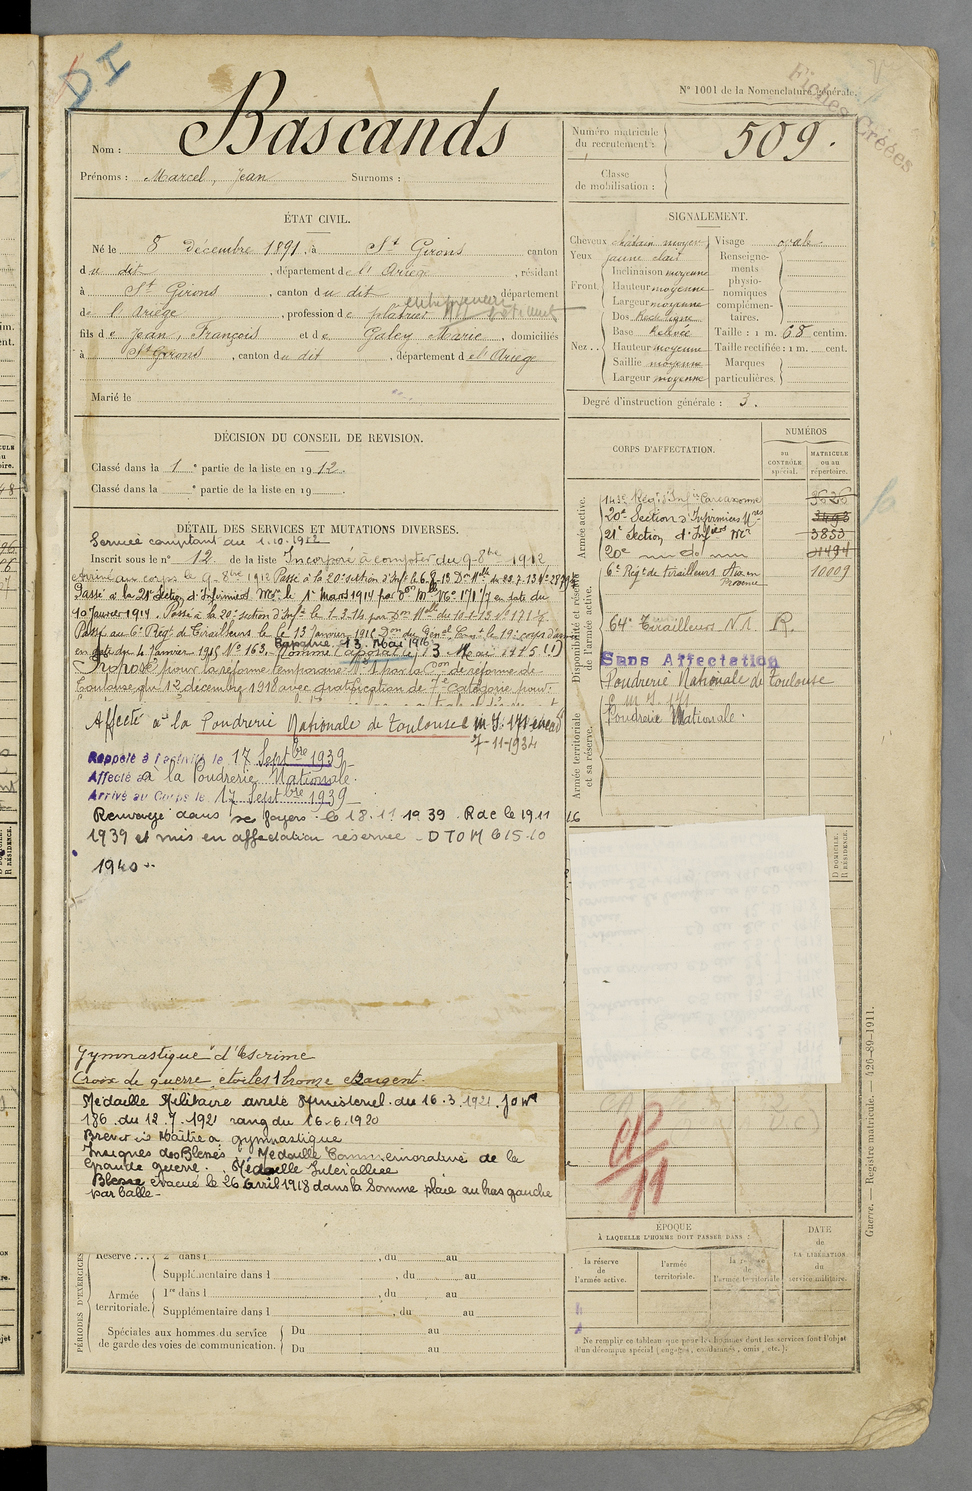 DI
Fiches Créées
N° 1001 de la Nomenclature générale.
Nom : Bascands
Prénoms : Marcel, Jean Surnoms :
Numéro matricule du recrutement : 509.
Classe de mobilisation :
ÉTAT CIVIL.
Né le 8 Décembre 1891, à St Girons canton
du dit, département de l'Ariège, résidant
à St Girons, canton du dit département
de l'Ariège, profession de plâtrier entrepreneur
fils de Jean, François et de Galey Marie, domiciliés
à St Girons, canton du dit, département de l'Ariège
Marié le
SIGNALEMENT.
Cheveux châtain moyen Visage ovale
Yeux jaune clair Renseigne-
Inclinaison moyenne ments
Front. Hauteur moyenne physio-
nomiques
Largeur moyenne complémen-
Dos Rectiligne taires.
Base Relevée Taille : 1 m. 68 centim.
Nez. Hauteur moyenne Taille rectifiée : 1 m. cent.
Saillie moyenne Marques
Largeur moyenne particulières.
Degré d'instruction générale : 3.
DÉCISION DU CONSEIL DE REVISION.
Classé dans la 1e partie de la liste en 1912.
Classé dans la e partie de la liste en 19 .
CORPS D'AFFECTATION.
NUMÉROS
au CONTRÔLE spécial.
MATRICULE ou au répertoire.
Armée active.
143e Régt d'Infie Carcassonne 3626
20e Section d'Infirmiers Mres 3493
21e Section d'Infiers Mre 3853
20e do 3494
Disponibilité et réserve de l'armée active.
6e Régt de tirailleurs Aix en Provence 10009
64e Tirailleurs N1. R.
Sans Affectation
Poudrerie Nationale de Toulouse
Armée territoriale et sa réserve.
Poudrerie Nationale.
DÉTAIL DES SERVICES ET MUTATIONS DIVERSES.
Service comptant du 1.10.1912
Inscrit sous le n° 12. de la liste Incorporé à compter du 9-8bre 1912
arrivé au corps le 9-8bre 1912 Passé à la 20e section d'Infl le 6.8.13 Don Mlle du 22.7.13
Passé à la 21e Section d'Infirmiers Mres le 1er Mars 1914 par Don Mlle N° 171/7 en date du
10 Janvier 1914. Passé à la 20e section d'Infl le 1.3.14 par Don Mlle
Passé au 6e Régt de Tirailleurs le 13 Janvier 1915 Don du Génal Cmt le 19e corps d'armée
en date du 4 Janvier 1915 N° 163. Nommé Caporal le 13 Mai 1915 (1)
Caporal 13 Mai 1916
Proposé pour la réforme temporaire N° 1 par la Con de réforme de
Toulouse du 12 décembre 1918 avec gratification de 7e catégorie pour
Affecté à la Poudrerie Nationale de Toulouse
7-11-1934
Rappelé à l'activité le 17 Septbre 1939
Affecté à la Poudrerie Nationale.
Arrivé au Corps le 17 Septbre 1939
Renvoyé dans ses foyers le 18.11.1939. Rdc le 19.11
1939 et mis en affectation réservée
1940
D DOMICILE.
R RÉSIDENCE.
Gymnastique d'Escrime
Croix de guerre étoiles 1 bronze et 2 argent.
Médaille Militaire arrêté Ministériel du 16.3.1921. JO N°
186 du 12.7.1921 rang du 16.6.1920
Brevet de Maître gymnastique
Insignes des Blessés Médaille Commémorative de la
Grande Guerre. Médaille Interalliée
Blessé évacué le 26 avril 1918 dans la Somme plaie au bras gauche
par balle.
Réserve 2e dans l , du au
Supplémentaire dans l , du au
PÉRIODES D'EXERCICES
Armée territoriale. 1re dans l , du au
Supplémentaire dans l , du au
Spéciales aux hommes du service de garde des voies de communication. Du au
Du au
ÉPOQUE
À LAQUELLE L'HOMME DOIT PASSER DANS :
la réserve de l'armée active.
l'armée territoriale.
la réserve de l'armée territoriale
DATE de LA LIBÉRATION du service militaire.
Ne remplir ce tableau que pour les hommes dont les services font l'objet
d'un décompte spécial (engagés, condamnés, omis, etc.).
Guerre. — Registre matricule. — 426-89-1911.